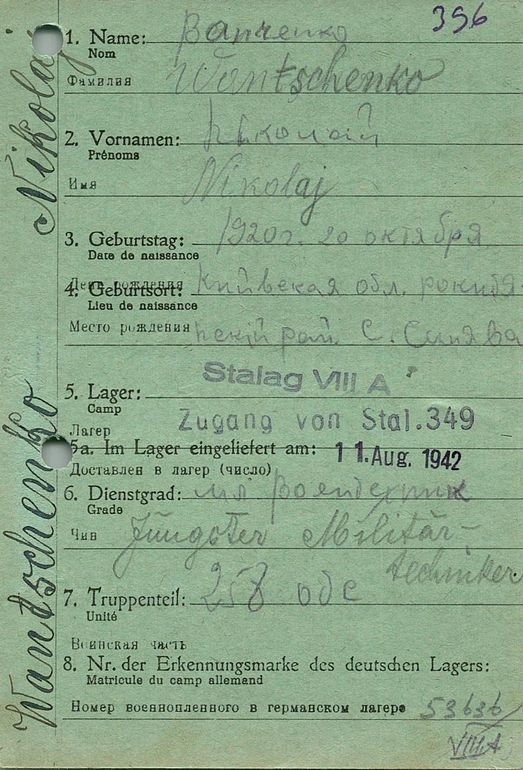 396
1. Name: Ванченко
Nom
Фамилия Wantschenko
2. Vornamen: Николай
Prénoms
Имя Nikolaj
3. Geburtstag: 1920 г. 20 октября
Date de naissance
День рождения
4. Geburtsort: Київская обл. рокитя-
Lieu de naissance
Место рождения нскій рай. С. Синява
Stalag VIII A
5. Lager:
Camp
Zugang von Stal. 349
Лагер
5a. Im Lager eingeliefert am: 11. Aug. 1942
Доставлен в лагер (число)
6. Dienstgrad: мл. воентехник
Grade
Чин Jüngster Militär-
techniker.
7. Truppenteil: 258 обс
Unité
Воинская часть
8. Nr. der Erkennungsmarke des deutschen Lagers:
Matricule du camp allemand
Номер военнопленного в германском лагере 53636
VIII A
Wantschenko Nikolaj